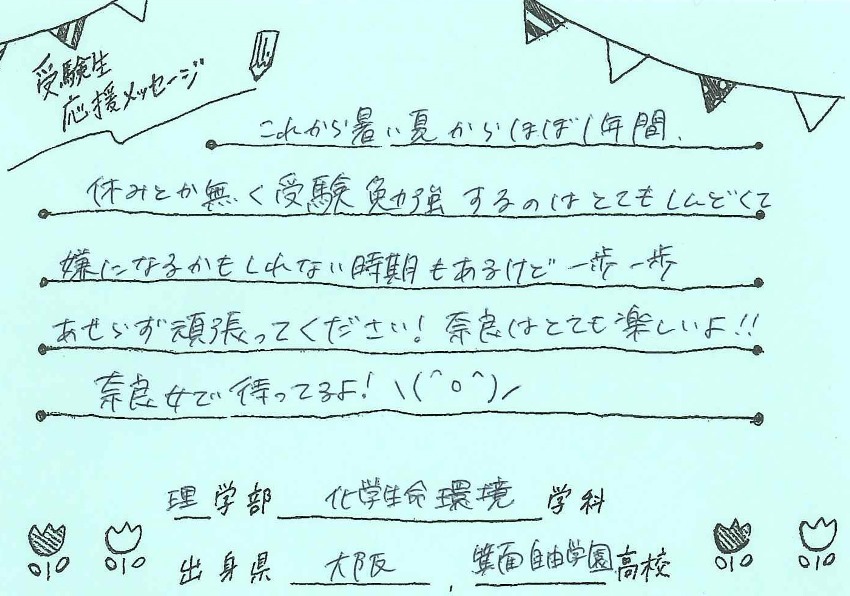 受験生
応援メッセージ
これから暑い夏からほぼ1年間、
休みとか無く受験勉強するのはとてもしんどくて
嫌になるかもしれない時期もあるけど一歩一歩
あせらず頑張ってください！奈良はとても楽しいよ!!
奈良女で待ってるよ！\(^o^)/
理学部 化学生命環境学科
出身県 大阪、箕面自由学園高校